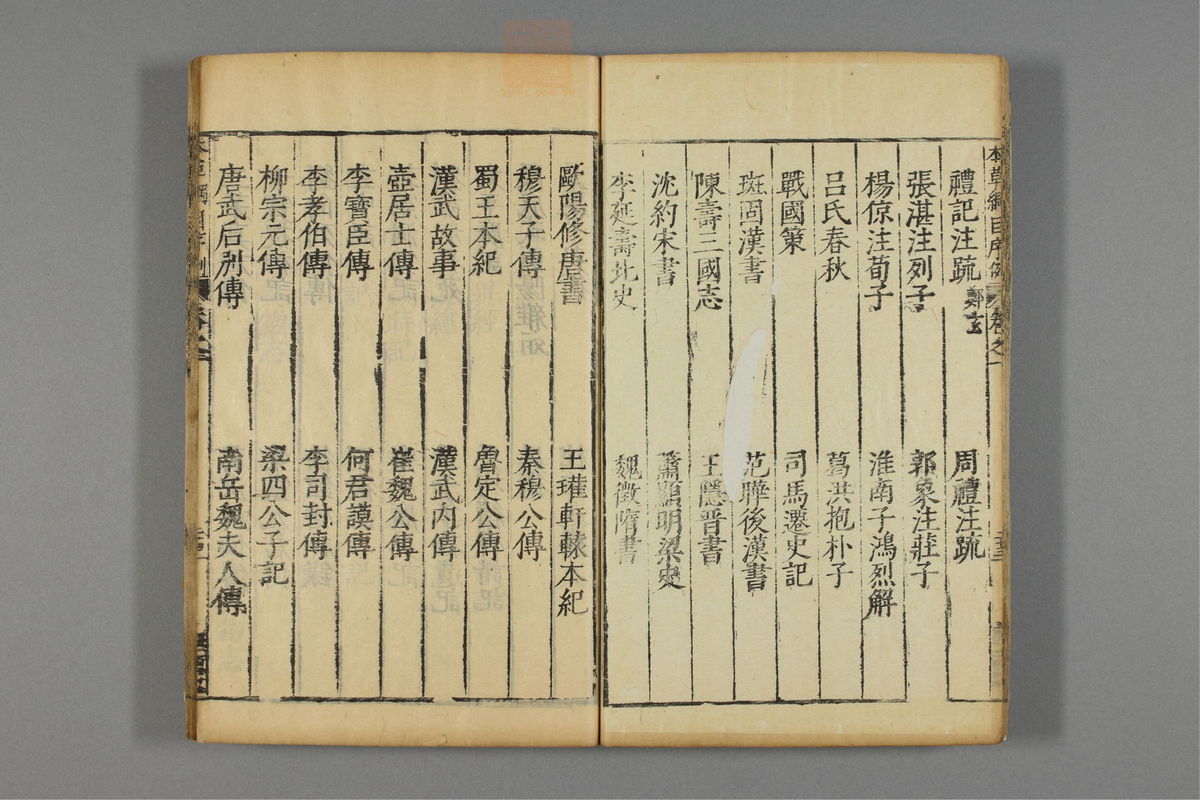 本草綱目序例 卷之一
禮記注疏 鄭玄 周禮注疏
張湛注列子 郭象注莊子
楊倞注荀子 淮南子鴻烈解
呂氏春秋 葛洪抱朴子
戰國策 司馬遷史記
班固漢書 范曄後漢書
陳壽三國志 王隱晉書
沈約宋書 蕭顯明梁史
李延壽北史 魏徵隋書
歐陽修唐書 王瓘軒轅本紀
穆天子傳 秦穆公傳
蜀王本紀 魯定公傳
漢武故事 漢武內傳
壺居士傳 崔魏公傳
李寶臣傳 何君謨傳
李孝伯傳 李司封傳
柳宗元傳 梁四公子記
唐武后別傳 南岳魏夫人傳